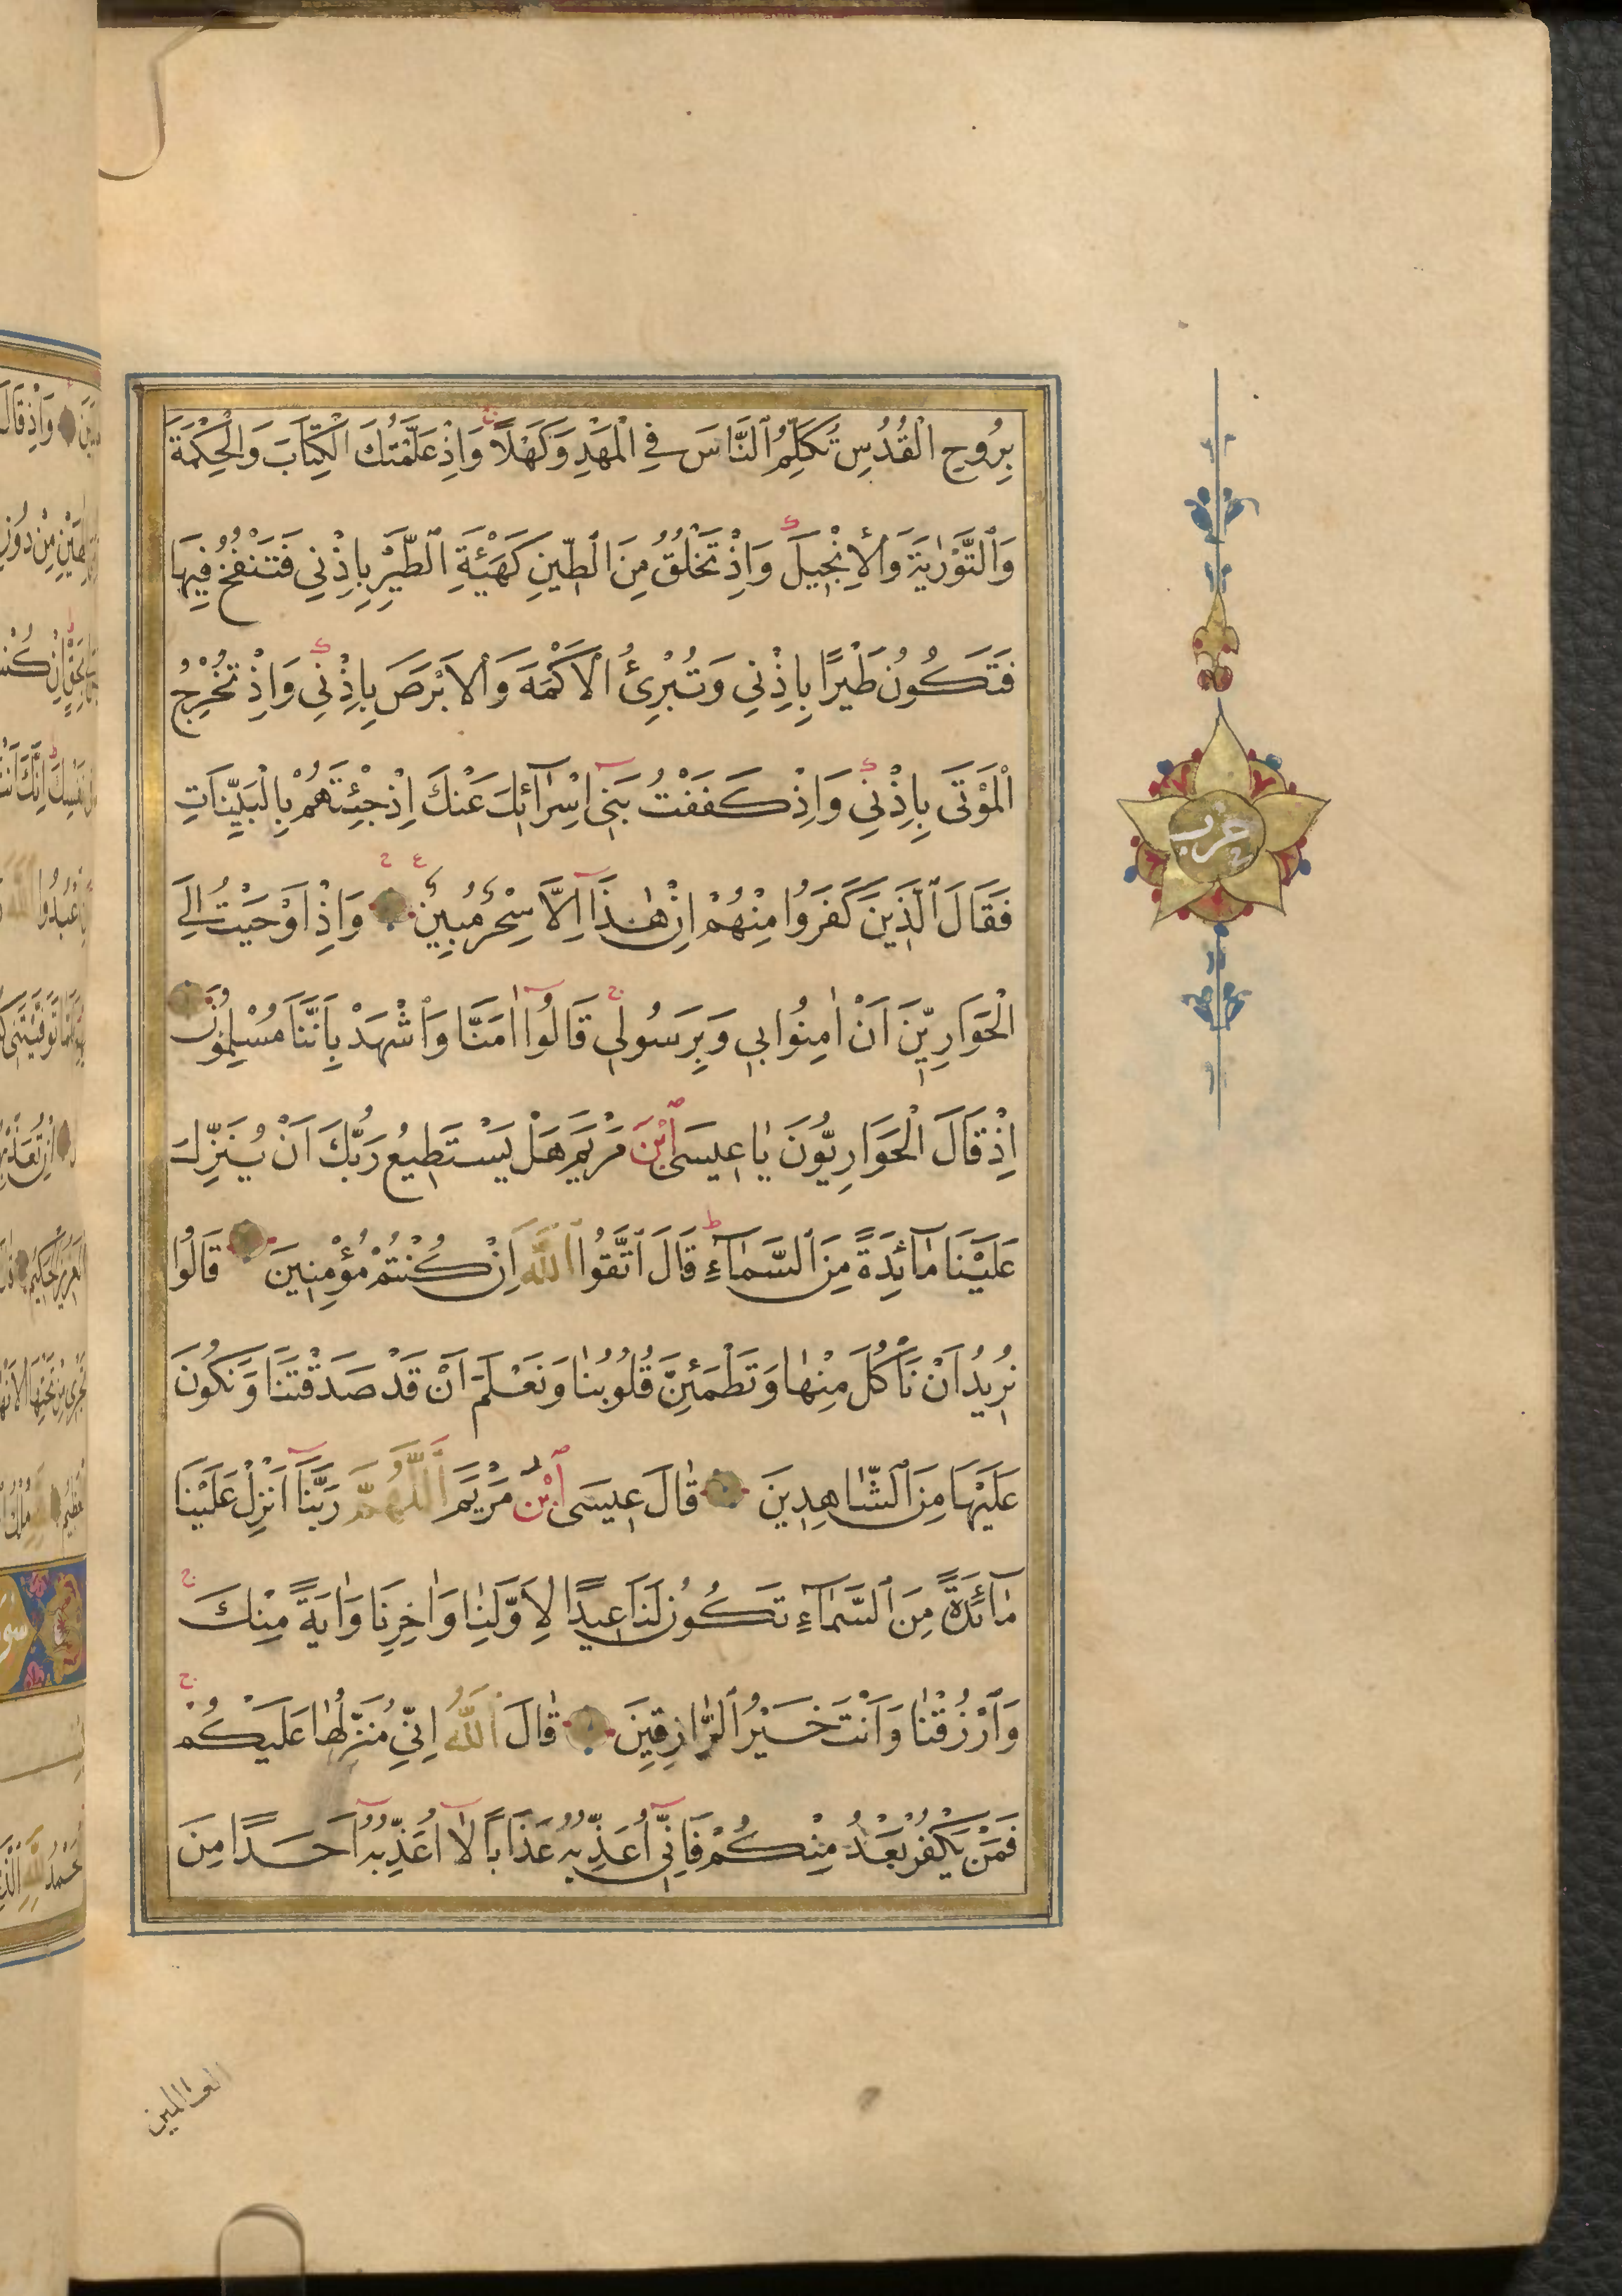 بِرُوحِ الْقُدُسِ تُكَلِّمُ ٱلنَّاسَ فِي الْمَهْدِ وَكَهْلًا وَاِذْ عَلَّمْتُكَ الْكِتَابَ وَالْحِكْمَةَ
وَٱلتَّوْرٰيةَ وَالْاِنْجِيلَ وَاِذْ تَخْلُقُ مِنَ ٱلطِّينِ كَهَيْئَةِ ٱلطَّيْرِ بِاِذْنِي فَتَنْفُخُ فِيهَا
فَتَكُونُ طَيْرًا بِاِذْنِي وَتُبْرِئُ الْاَكْمَهَ وَالْاَبْرَصَ بِاِذْنِي وَاِذْ تُخْرِجُ
الْمَوْتَى بِاِذْنِي وَاِذْ كَفَفْتُ بَنِي اِسْرَآئِلَ عَنْكَ اِذْ جِئْتَهُمْ بِالْبَيِّنَاتِ
فَقَالَ ٱلَّذِينَ كَفَرُوا مِنْهُمْ اِنْ هٰذَا اِلَّا سِحْرٌ مُبِينٌ وَاِذْ اَوْحَيْتُ اِلَى
الْحَوَارِيّنَ اَنْ اٰمِنُوا بِي وَبِرَسُولِي قَالُوا اٰمَنَّا وَٱشْهَدْ بِاَنَّنَا مُسْلِمُونَ
اِذْ قَالَ الْحَوَارِيُّونَ يٰا عِيسَى ٱبْنَ مَرْيَمَ هَلْ يَسْتَطِيعُ رَبُّكَ اَنْ يُنَزِّلَ
عَلَيْنَا مٰآئِدَةً مِنَ ٱلسَّمَآءِ قَالَ ٱتَّقُوا ٱللَّهَ اِنْ كُنْتُمْ مُؤْمِنِينَ قَالُوا
نُرِيدُ اَنْ نَأْكُلَ مِنْهٰا وَتَطْمَئِنَّ قُلُوبُنٰا وَنَعْلَمَ اَنْ قَدْ صَدَقْتَنَا وَنَكُونَ
عَلَيْهَا مِنَ ٱلشَّاهِدِينَ قٰالَ عِيسَى ٱبْنُ مَرْيَمَ ٱللَّهُمَّ رَبَّنَا اَنْزِلْ عَلَيْنَا
مٰآئِدَةً مِنَ ٱلسَّمَآءِ تَكُونُ لَنَا عِيدًا لِاَوَّلِنٰا وَاٰخِرِنَا وَاٰيَةً مِنْكَ
وَٱرْزُقْنٰا وَاَنْتَ خَيْرُ ٱلرَّازِقِينَ قٰالَ ٱللَّهُ اِنِّي مُنَزِّلُهٰا عَلَيْكُمْ
فَمَنْ يَكْفُرْ بَعْدُ مِنْكُمْ فَاِنِّي اُعَذِّبُهُ عَذَابًا لٰا اُعَذِّبُهُ اَحَدًا مِنَ
العالمين
حزب